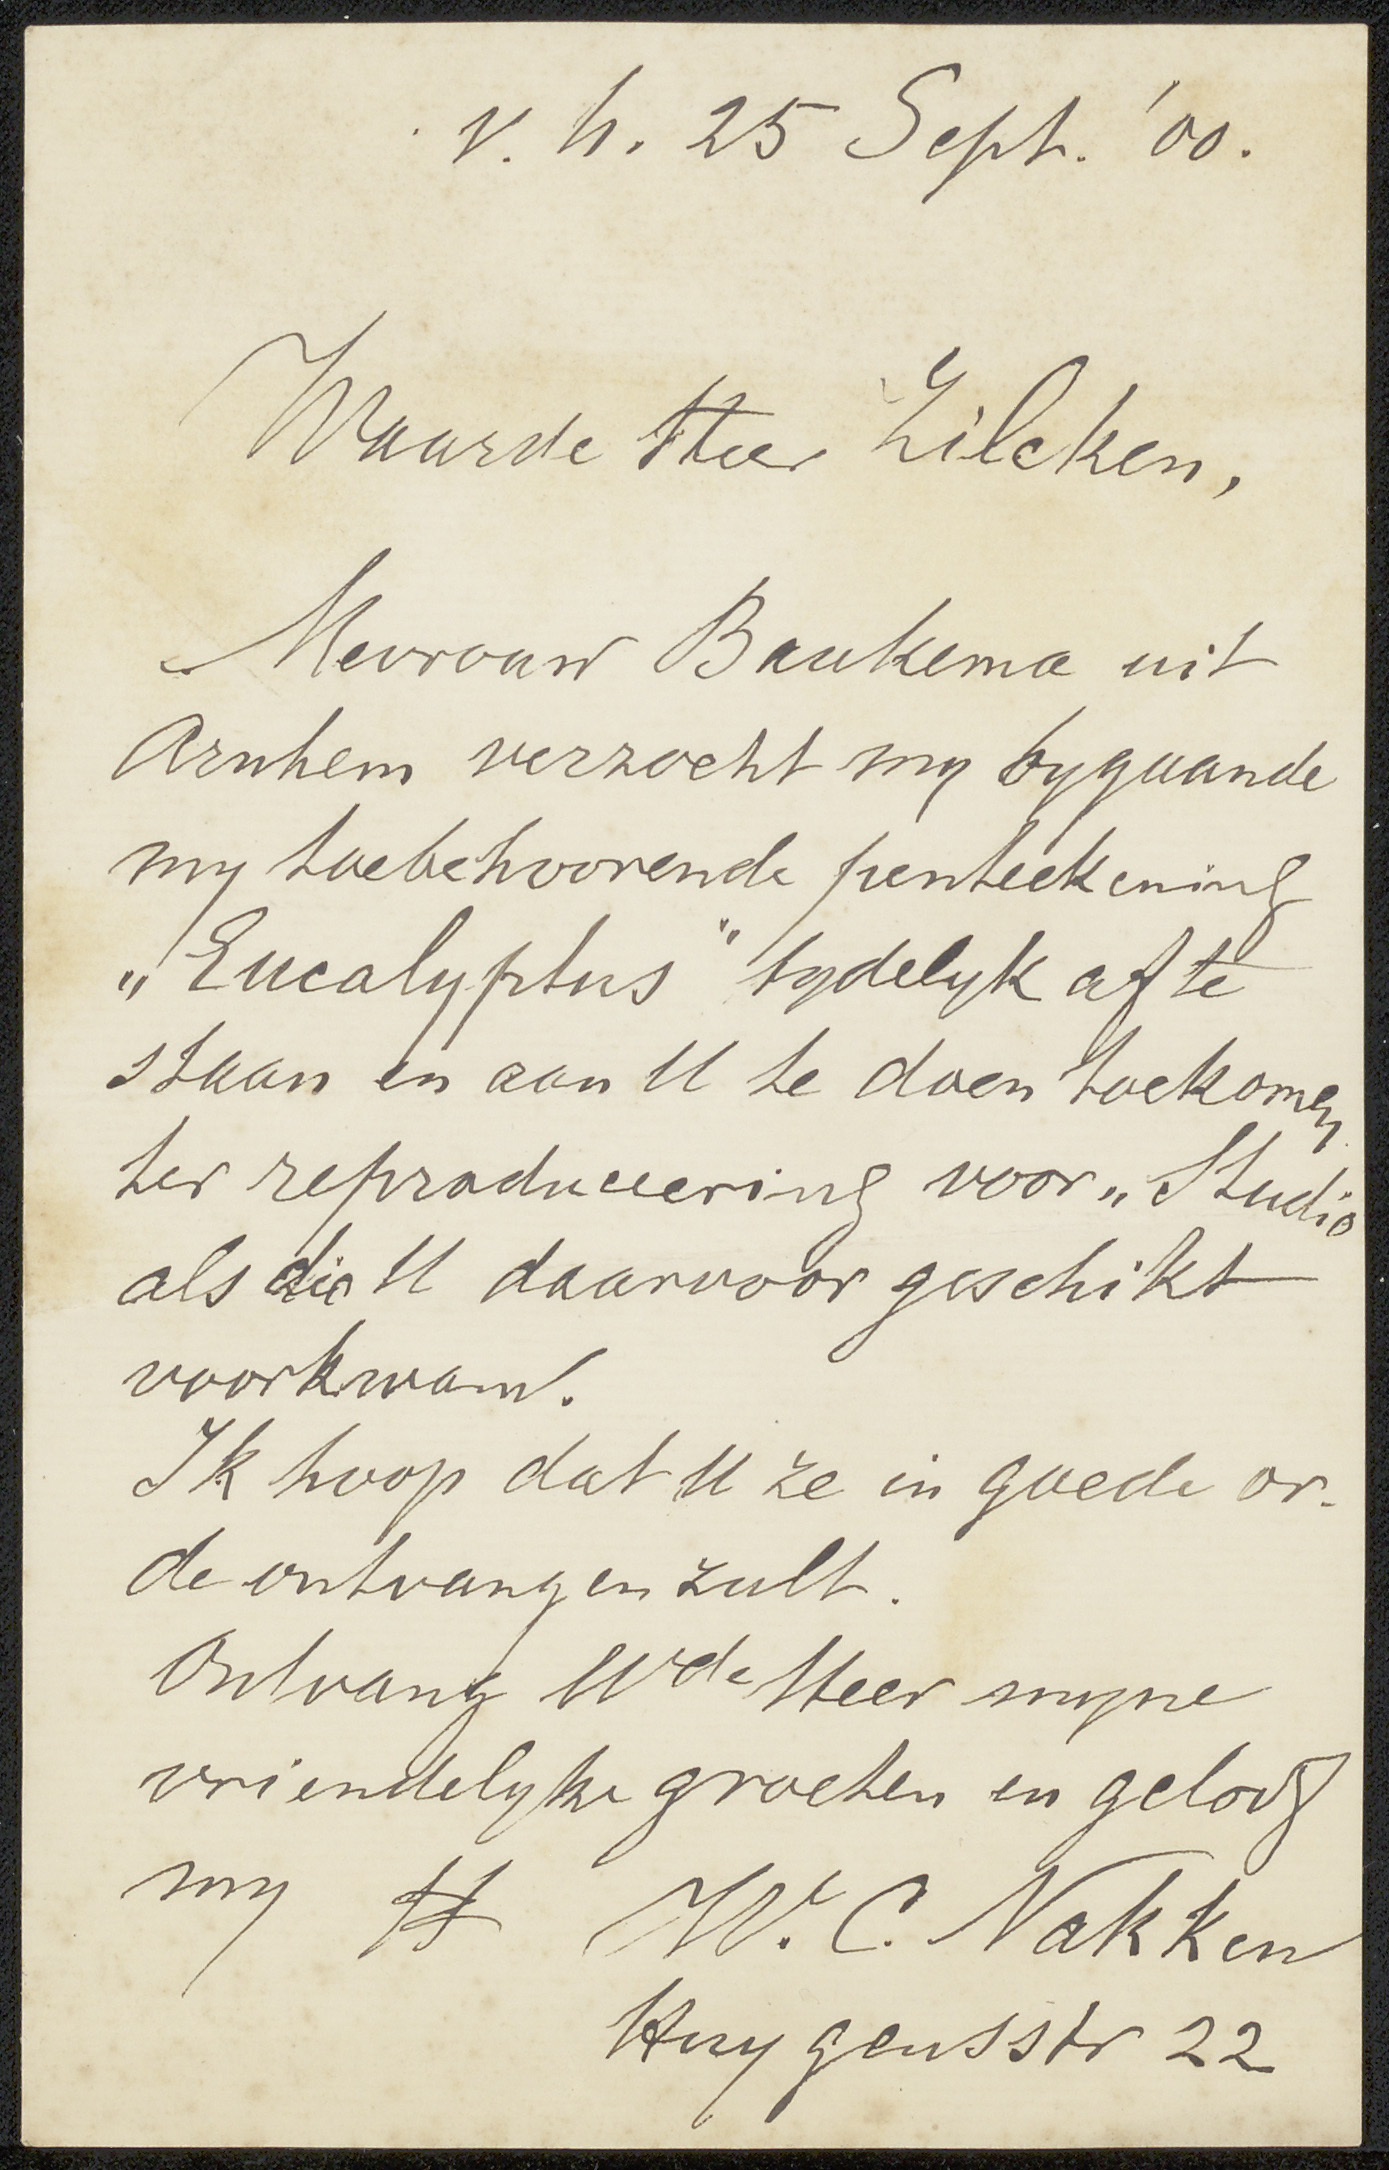 v. h. 25 Sept. '00.
Waarde Heer Zilcken,
Mevrouw Baukema uit
Arnhem verzocht my bygaande
my toebehoorende penteekening
„Eucalyptus" tydelyk af te
staan en aan U te doen toekomen
ter reproduceering voor „Studio
als die U daarvoor geschikt
voorkwam.
Ik hoop dat U ze in goede or-
de ontvangen zult.
Ontvang Wde Heer myne
vriendelyke groeten en geloof
my
W. C. Nakken
Huygensstr 22